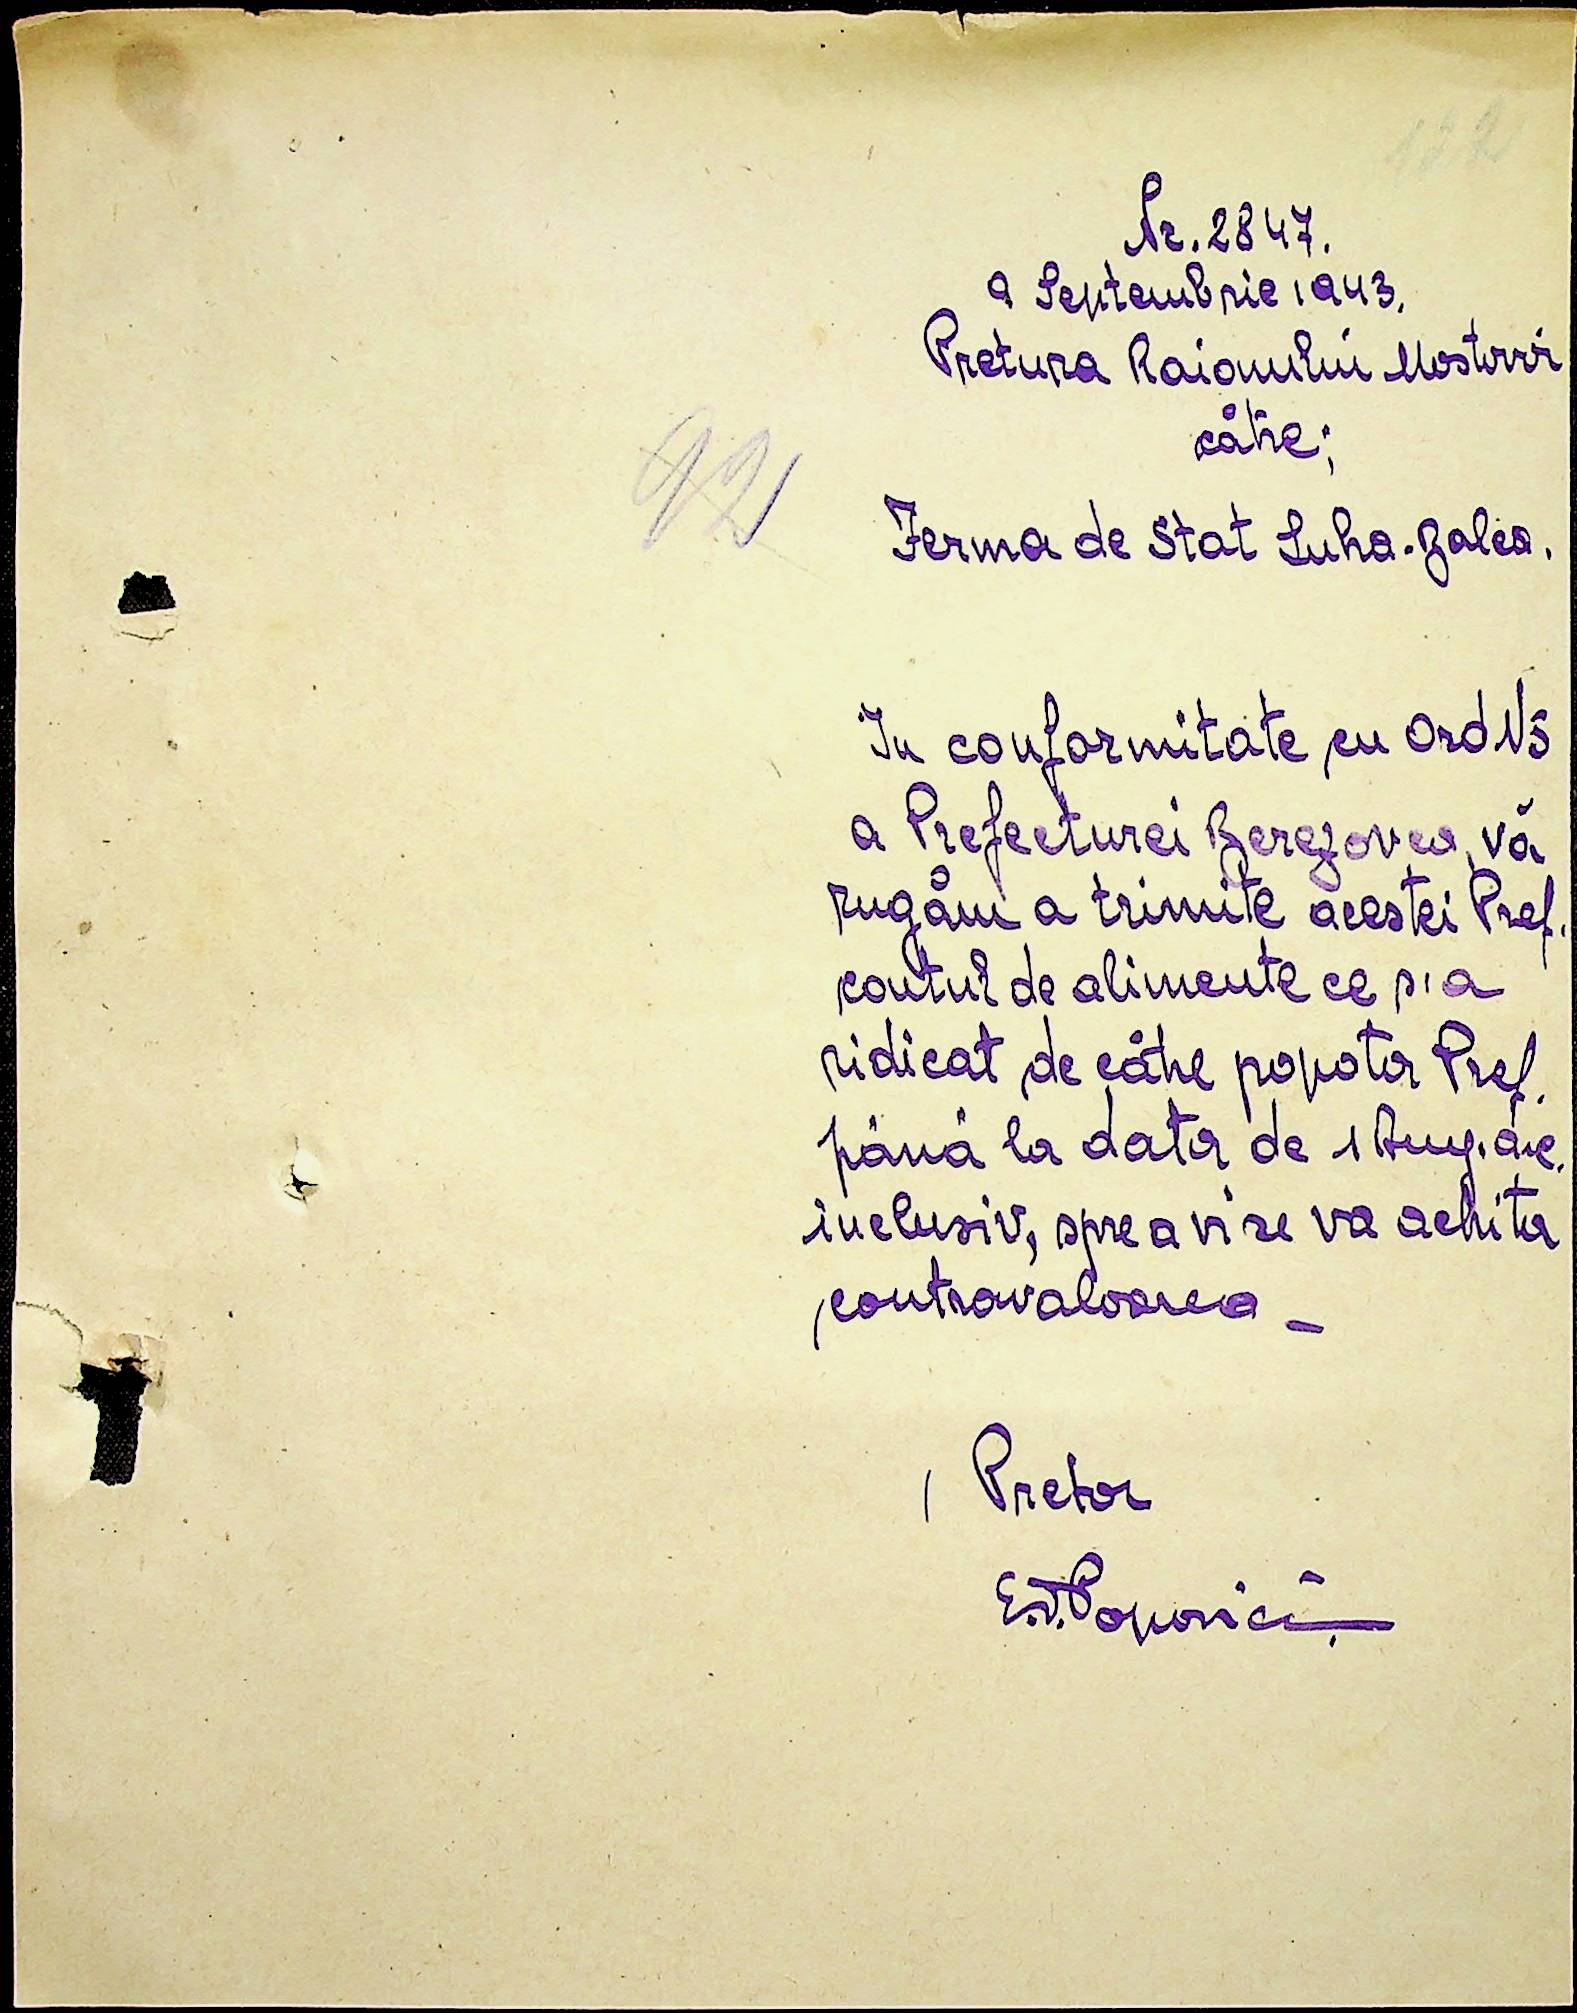 122
Nr. 2847.
9 Septembrie 1943.
Pretura Raionului Mostovoi
către;
92
Ferma de Stat Suha-Balca.
In conformitate cu Ord
a Prefecturei Berezovca, vă
rugăm a trimite acestei Pref.
contul de alimente ce s'a
ridicat de către popota Pref.
până la data de 1 Aug. a.c.
inclusiv, spre a vi se va achita
contravaloarea –
Pretor
Popovici